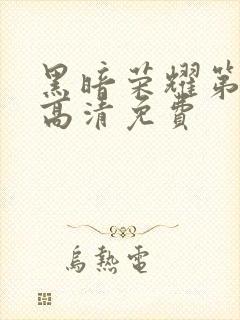 黑暗荣耀第
高清免费
烏熱電